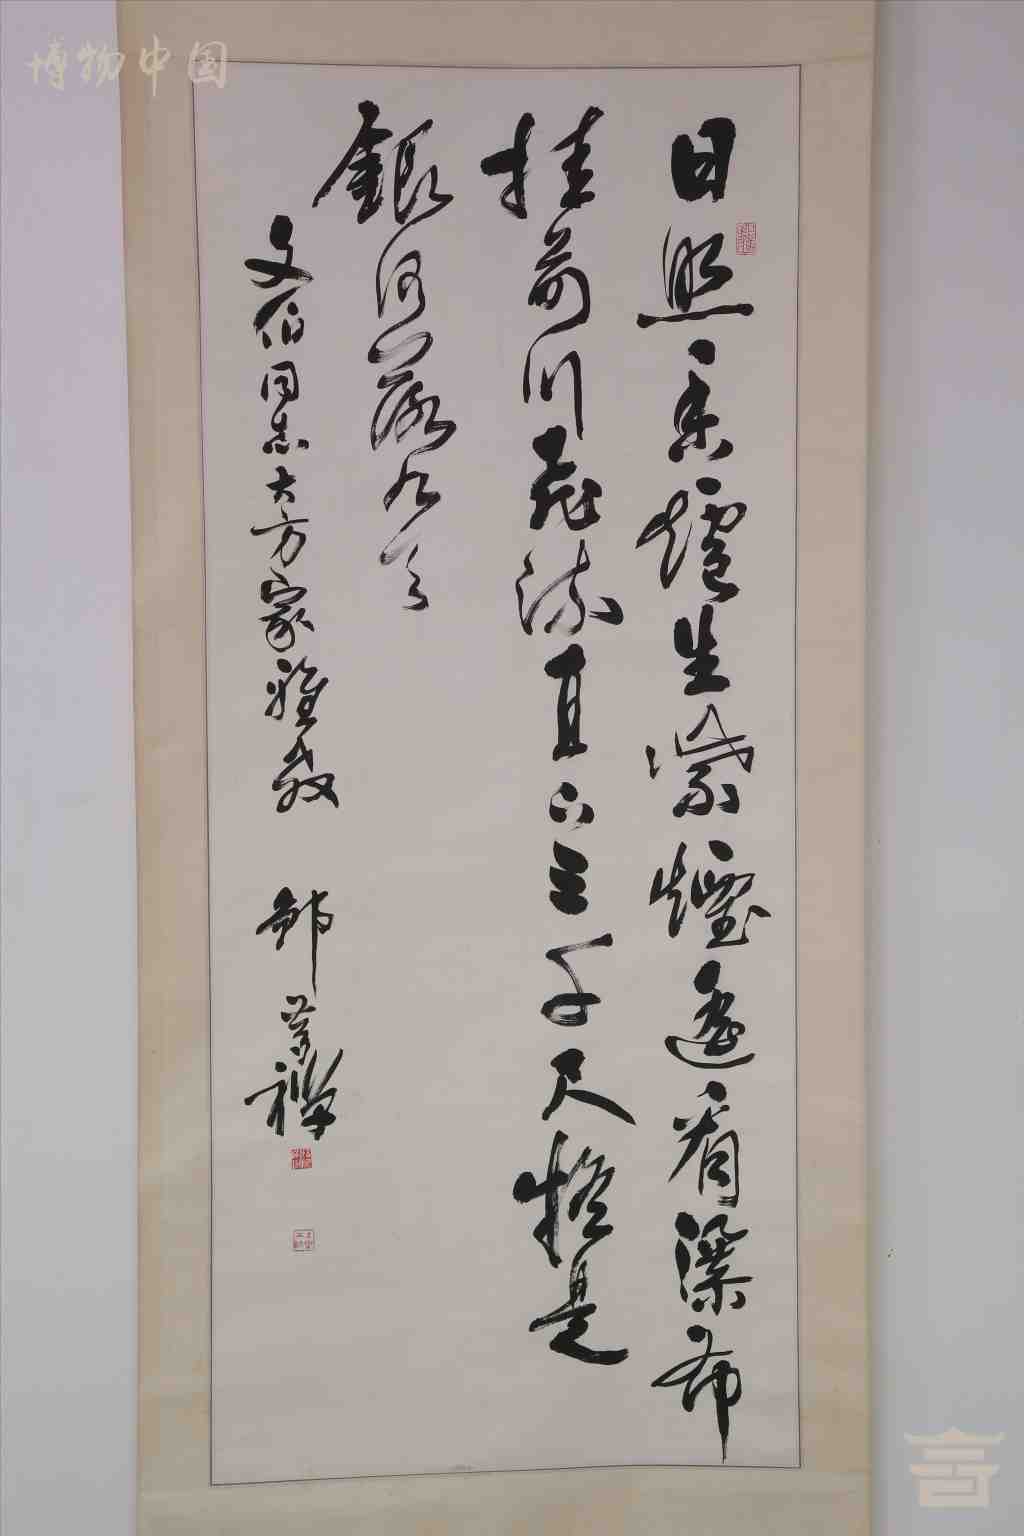 博物中国
日照香爐生紫煙遙看瀑布
挂前川飛流直下三千尺疑是
銀河落九天
文伯同志大方家雅教